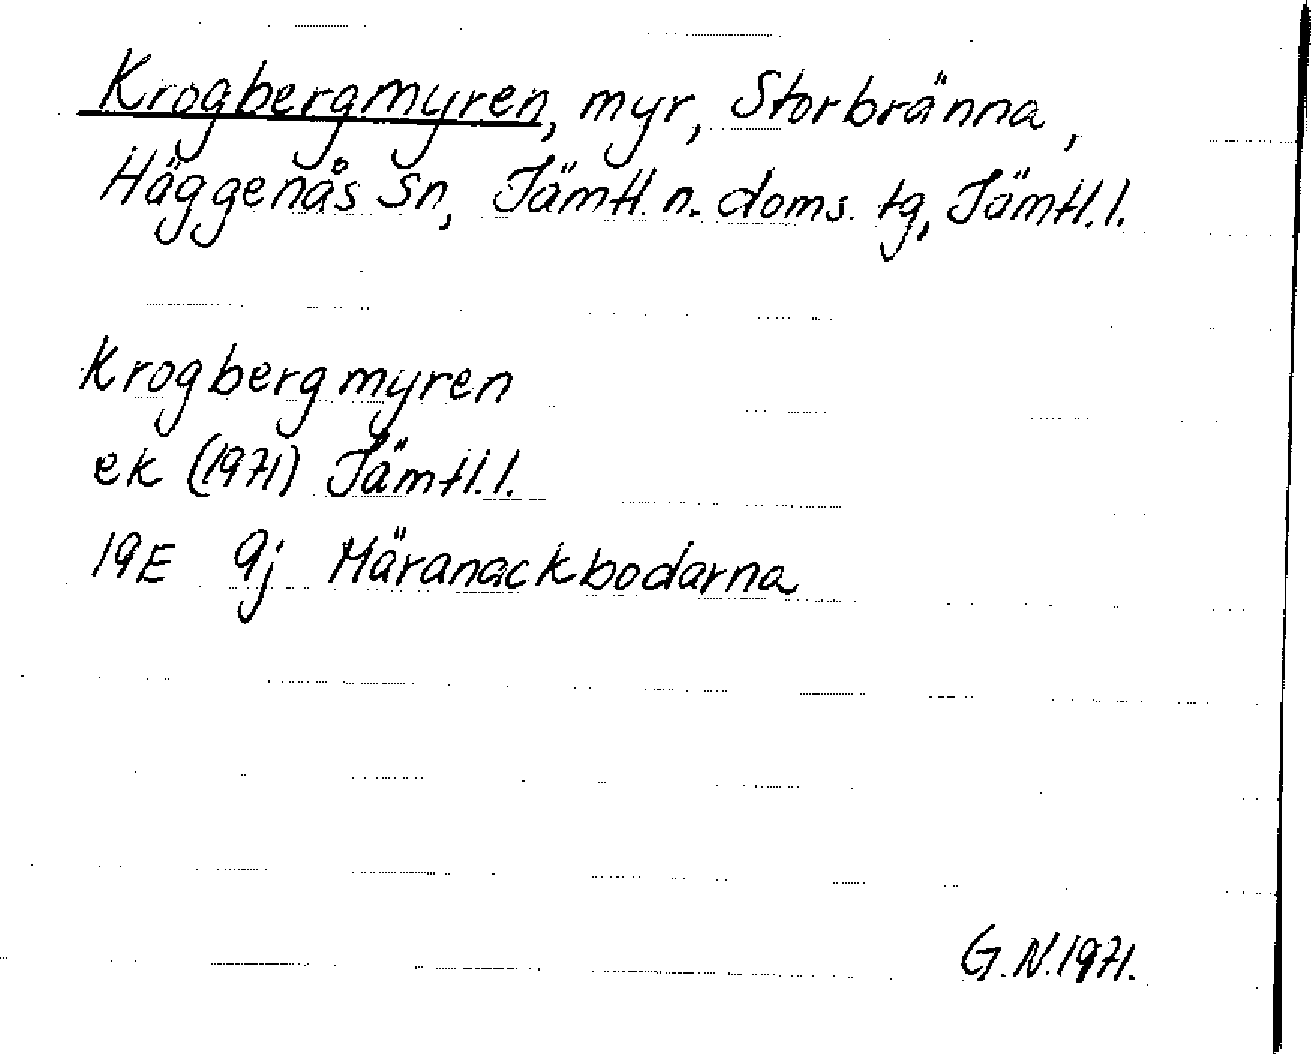 Krogbergmyren, myr, Storbränna,
Häggenås sn, Jämtl. n. doms. tg, Jämtl. l.
Krogbergmyren
ek (1971) Jämtl. l.
19E 9j Märanackbodarna
G. N. 1971.